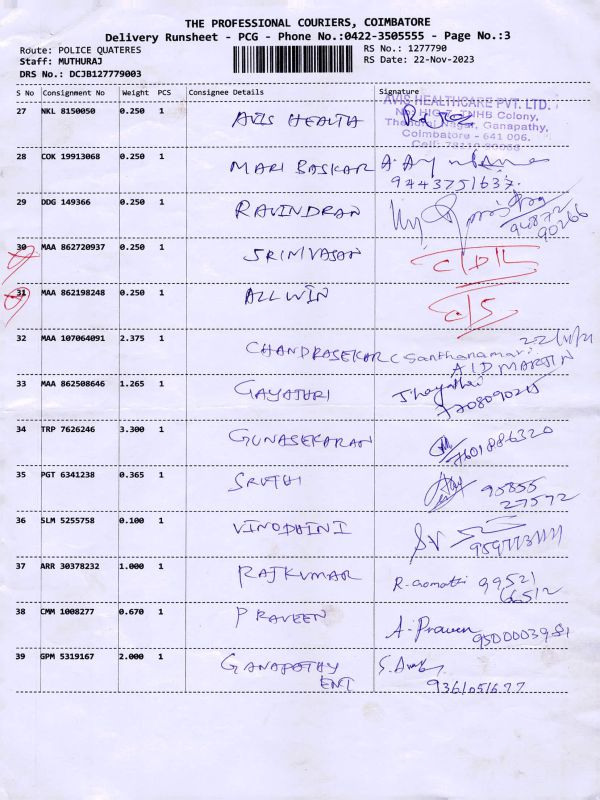 THE PROFESSIONAL COURIERS, COIMBATORE
Delivery Runsheet - PCG - Phone No.:0422-3505555 - Page No.:3
Route: POLICE QUATERES
RS No.: 1277790
Staff: MUTHURAJ
RS Date: 22-Nov-2023
DRS No.: DCJB127779003
S No Consignment No Weight PCS Consignee Details Signature
27 NKL 8150050 0.250 1 AVIS HEALTH
AVIS HEALTHCARE PVT. LTD.
TNHB Colony,
Nagar, Ganapathy,
Coimbatore - 641 006.
28 COK 19913068 0.250 1 MARI BASKAR A.
9443751637.
29 DDG 149366 0.250 1 RAVINDRAN
94872
90266
30 MAA 862720937 0.250 1 SRINIVASAN
31 MAA 862198248 0.250 1 ALLWIN
32 MAA 107064091 2.375 1 CHANDRASEKAR C Santhanamari
AID MARTIN
33 MAA 862508646 1.265 1 GAYATHRI
7708090215
34 TRP 7626246 3.300 1 GUNASEKARAN
7601886320
35 PGT 6341238 0.365 1 SRUTHI 95855
27572
36 SLM 5255758 0.100 1 VINODHINI SV
37 ARR 30378232 1.000 1 RAJKUMAR R. Gomathi 99521
66512
38 CMM 1008277 0.670 1 PRAVEEN A. Praveen
9500003981
39 GPM 5319167 2.000 1 GANAPATHY
ENT
9361051677